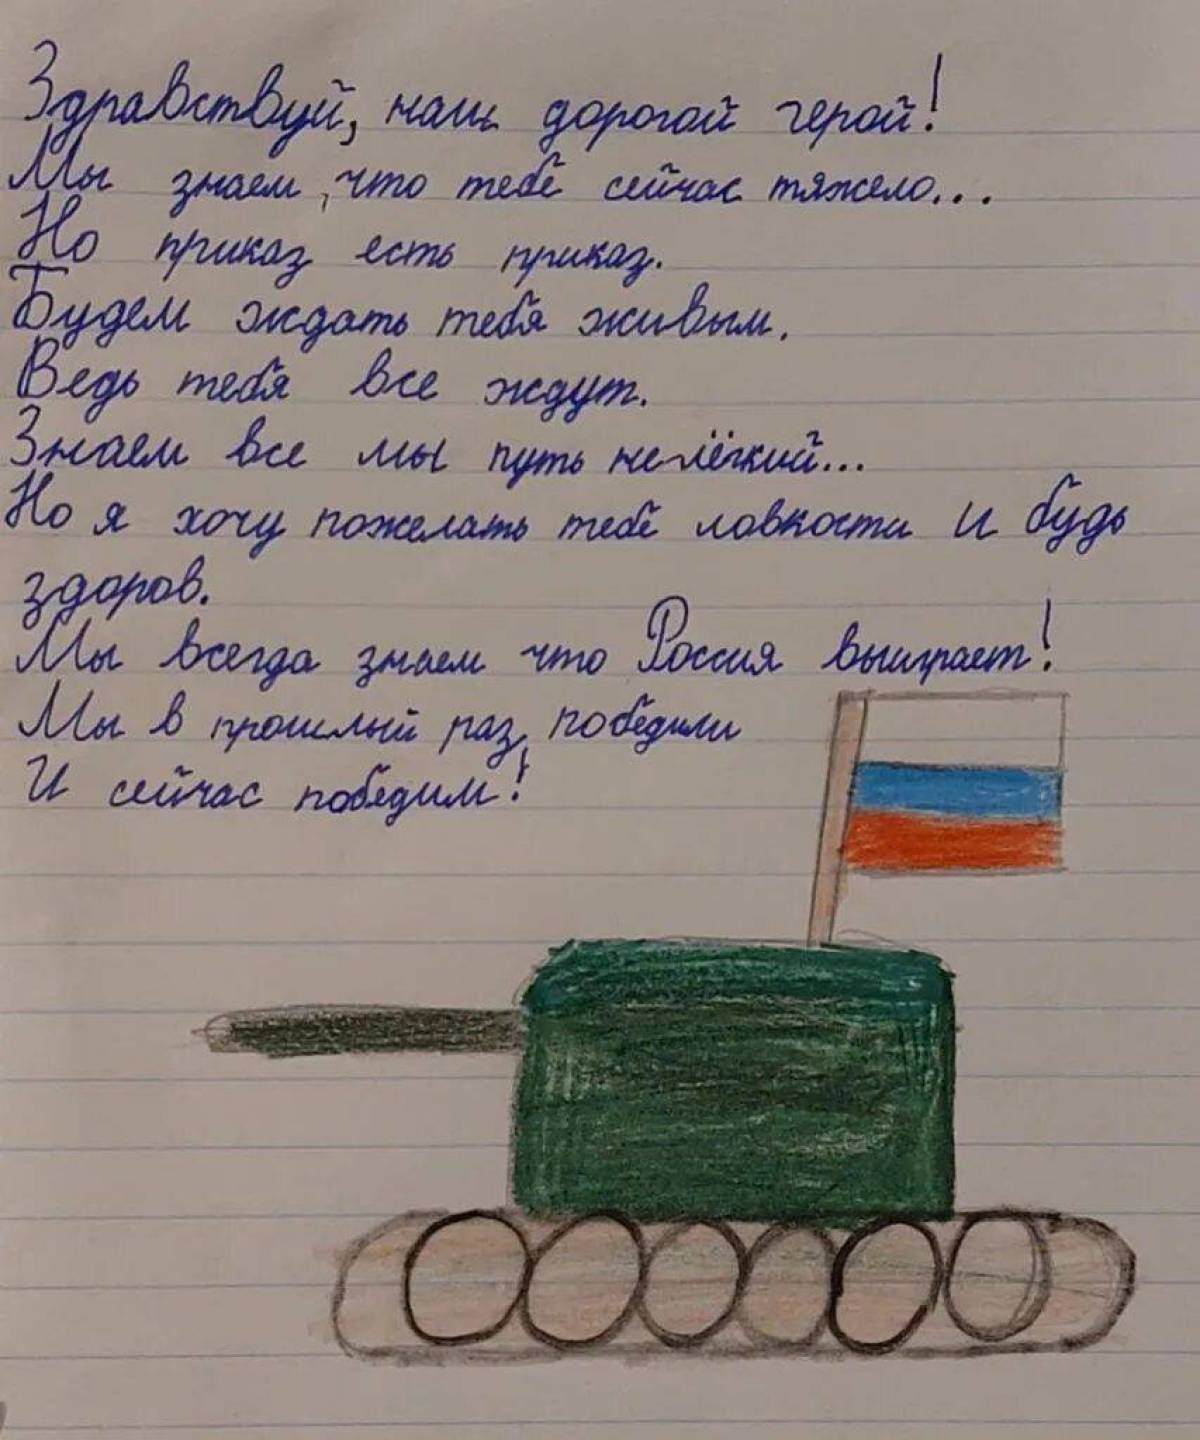 Здравствуй, наш дорогой герой!
Мы знаем, что тебе сейчас тяжело...
Но приказ есть приказ.
Будем ждать тебя живым.
Ведь тебя все ждут.
Знаем все мы путь не лёгкий...
Но я хочу пожелать тебе ловкости и будь
здоров.
Мы всегда знаем что Россия выиграет!
Мы в прошлый раз победили
И сейчас победим!